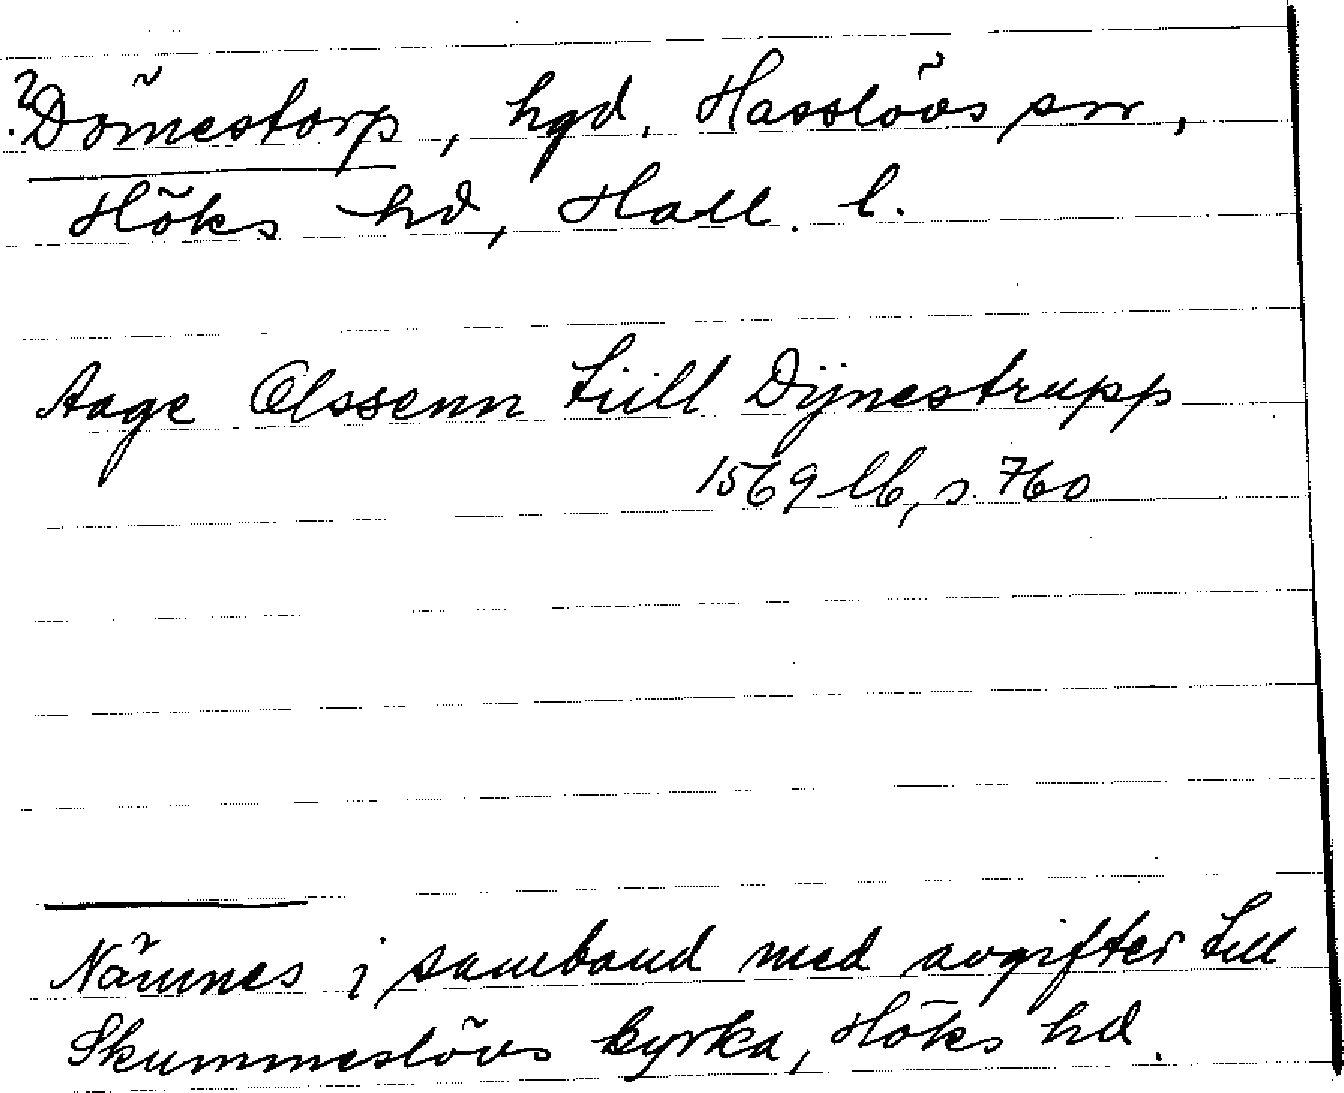 ? Dömestorp, hgd, Hasslövs sn,
Höks hd, Hall. l.
Aage Olssenn tiill Dÿnestrupp
1569 lb, s. 760
Nämnes i samband med avgifter till
Skummeslövs kyrka, Höks hd.